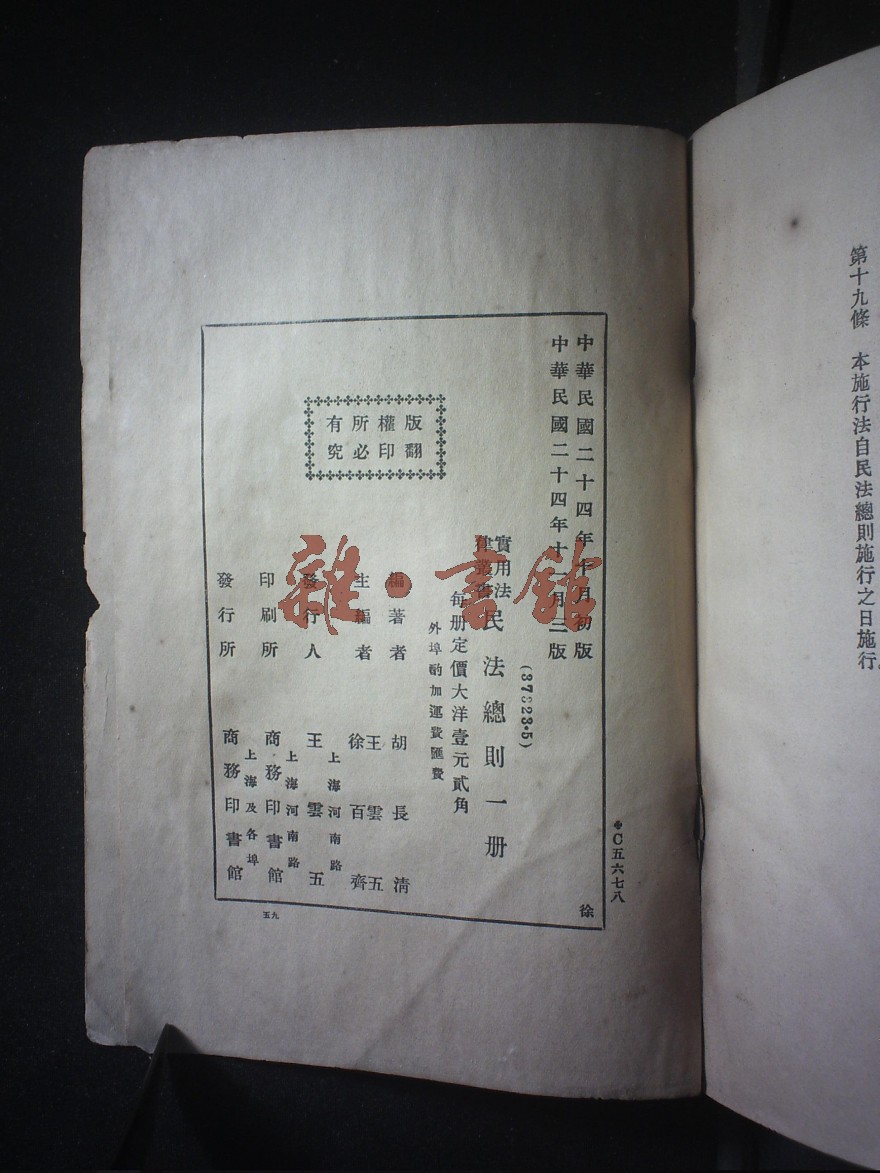 第十九條　本施行法自民法總則施行之日施行。
✤C五六七八
中華民國二十四年十月初版
中華民國二十四年十二月三版
徐
(37823·5)
實用法
律叢書
民法總則一册
每册定價大洋壹元貳角
外埠酌加運費匯費
版權所有
翻印必究
編著者　胡長清
主編者　王雲五
徐百齊
發行人　王雲五
上海河南路
印刷所　商務印書館
上海河南路
發行所　商務印書館
上海及各埠
五九
雜·書館